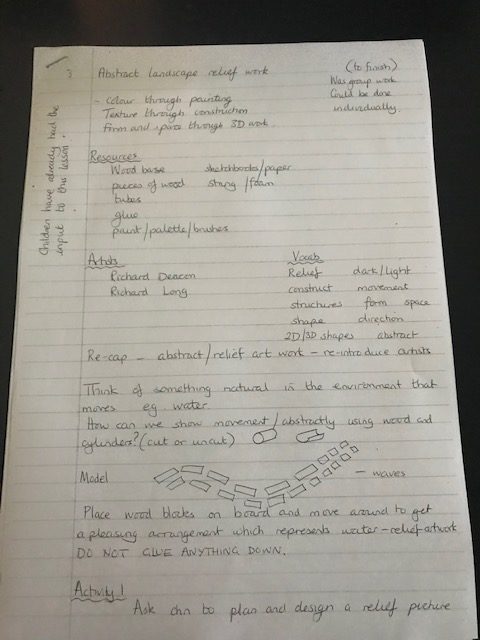 Abstract landscape relief work
(to finish)
Was group work
Could be done
individually.
- Colour through painting
Texture through construction
Form and space through 3D work.
Children have already had the
input to this lesson.
Resources
Wood base sketchbooks/paper
pieces of wood string/foam
tubes
glue
paint/palette/brushes
Artists
Richard Deacon
Richard Long
Vocab
Relief dark/light
construct movement
structures form space
shape direction
2D/3D shapes abstract
Re-cap - abstract/relief art work - re-introduce artists
Think of something natural in the environment that
moves eg water
How can we show movement/abstractly using wood and
cylinders? (cut or uncut)
Model - waves
Place wood blocks on board and move around to get
a pleasing arrangement which represents water - relief artwork
DO NOT GLUE ANYTHING DOWN.
Activity 1
Ask chn to plan and design a relief picture